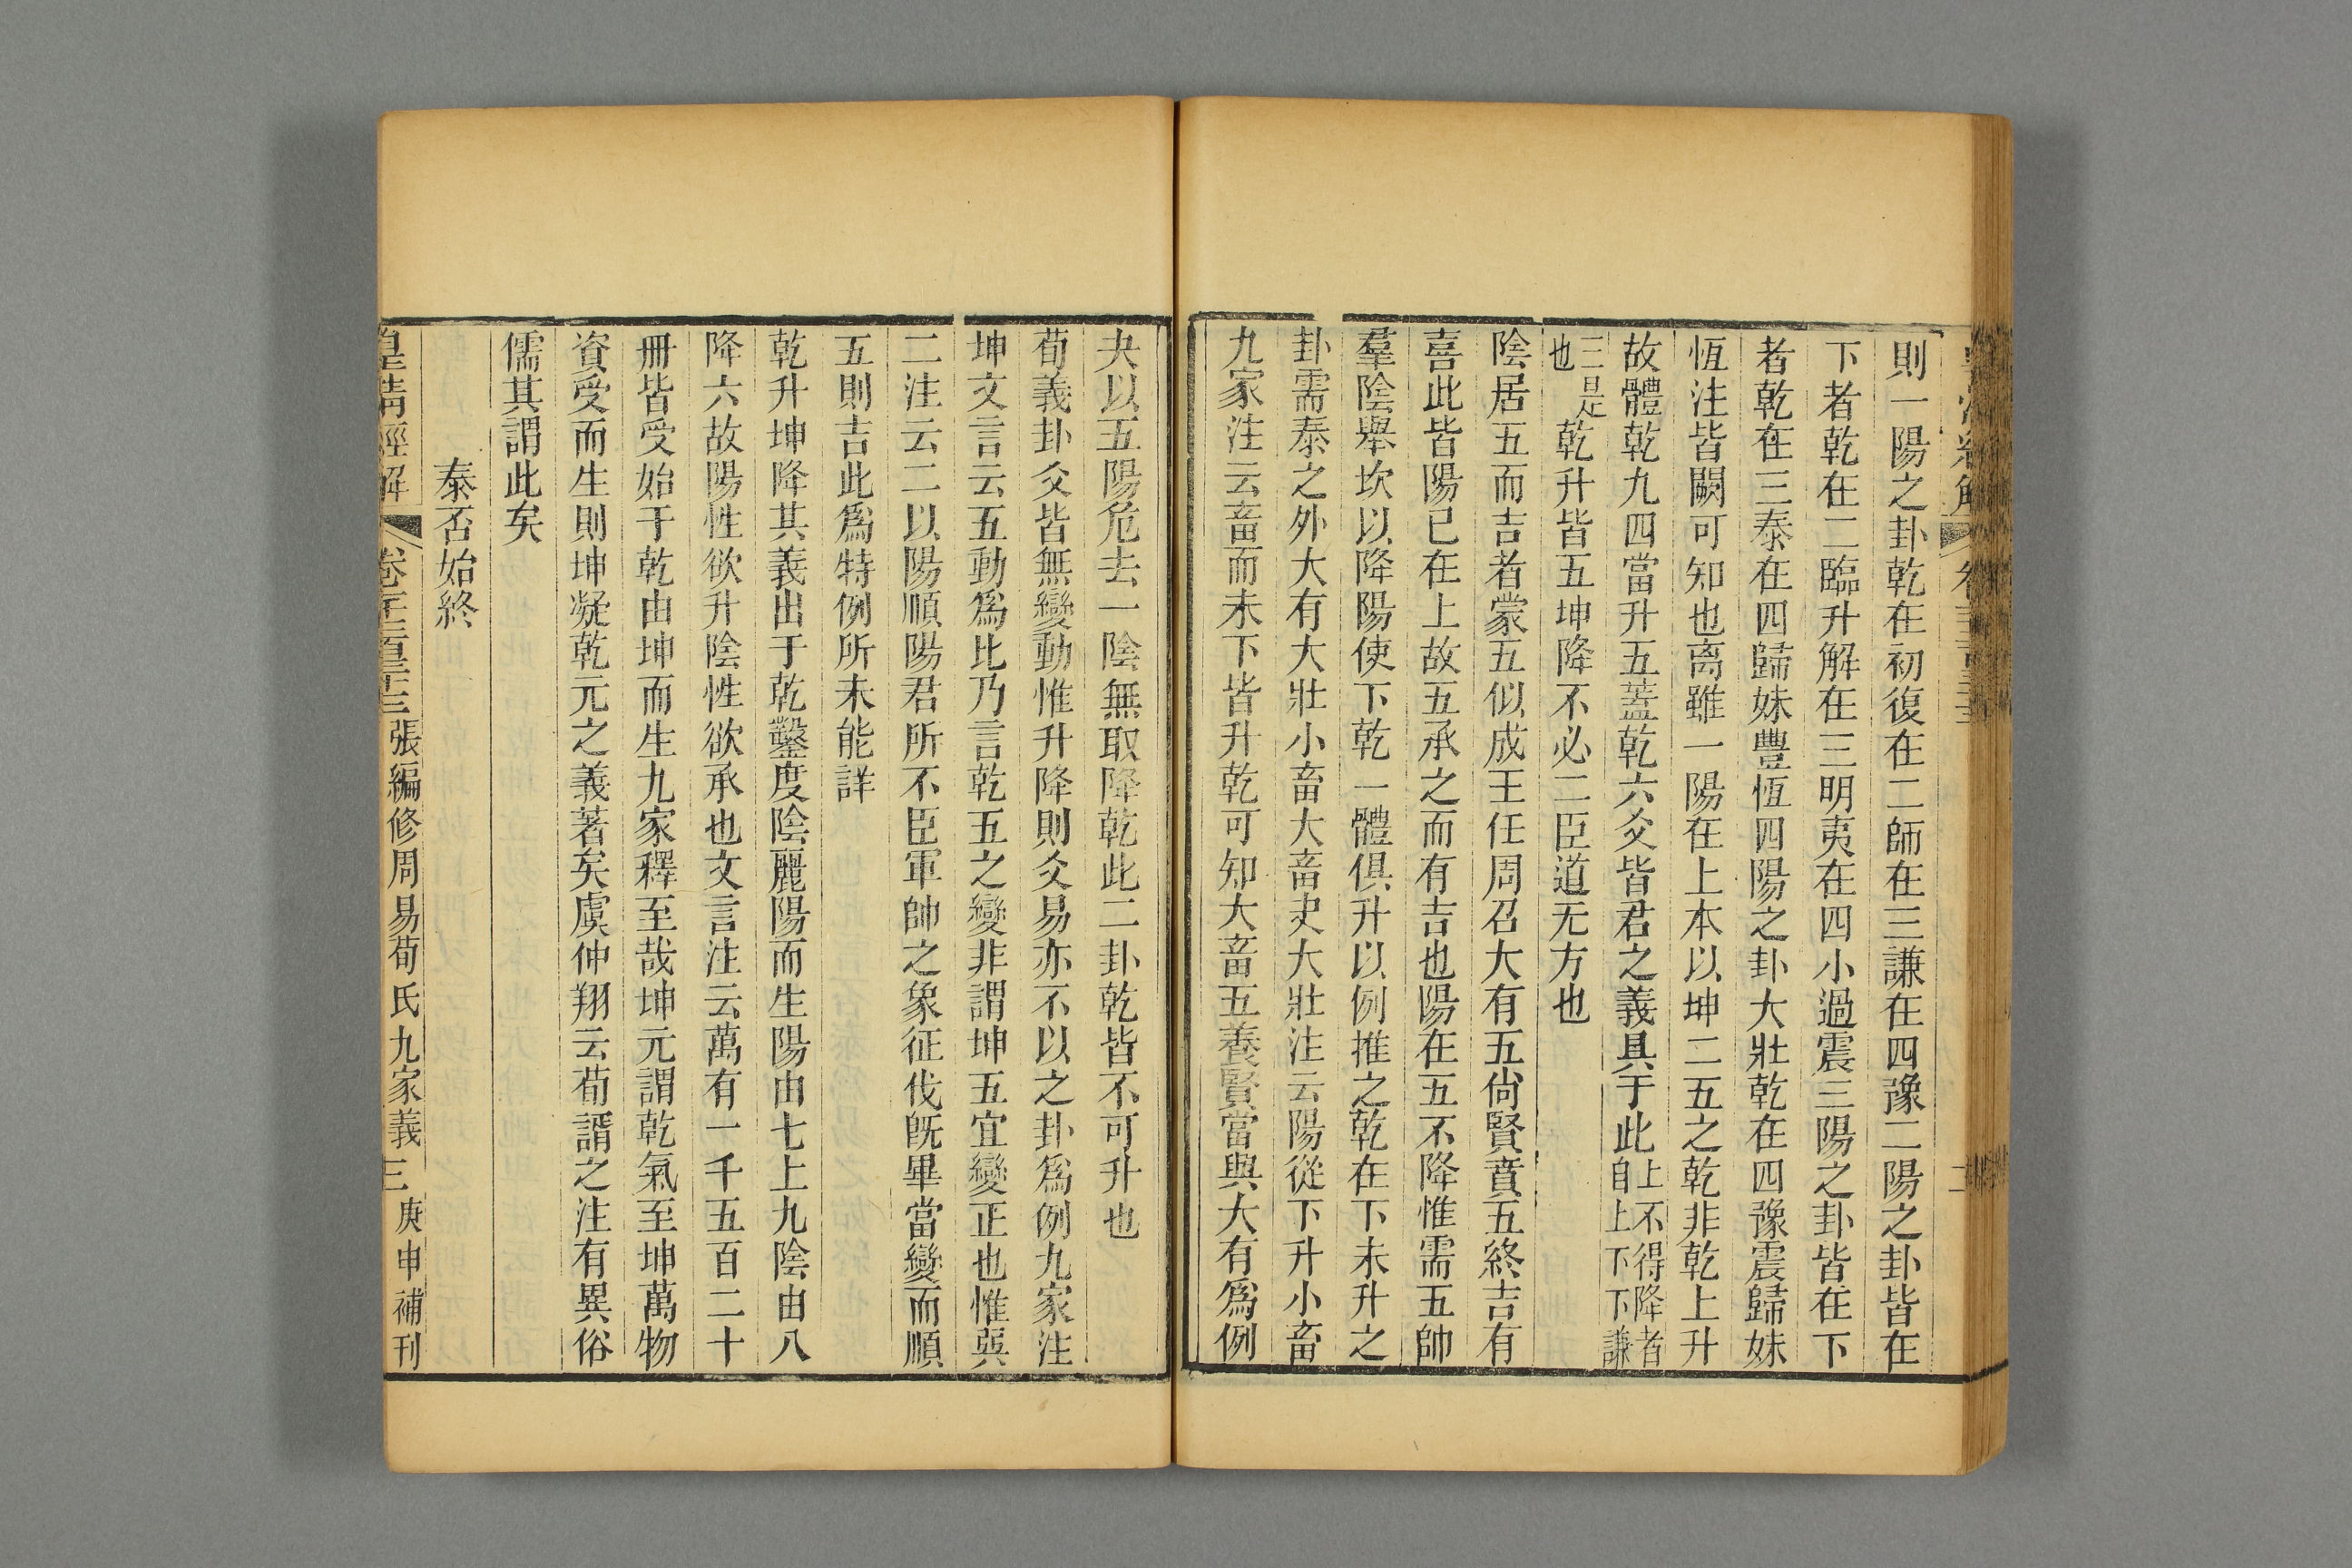 則一陽之卦乾在初復在二師在三謙在四豫二陽之卦皆在
下者乾在二臨升解在三明夷在四小過震三陽之卦皆在下
者乾在三泰在四歸妹豐恆四陽之卦大壯乾在四豫震歸妹
恆注皆闕可知也离雖一陽在上本以坤二五之乾非乾上升
故體乾九四當升五蓋乾六爻皆君之義具于此上不得降者
自上下下謙
三是
也乾升皆五坤降不必二臣道无方也
陰居五而吉者蒙五似成王任周召大有五尙賢賁五終吉有
喜此皆陽已在上故五承之而有吉也陽在五不降惟需五帥
羣陰舉坎以降陽使下乾一體俱升以例推之乾在下未升之
卦需泰之外大有大壯小畜大畜夬大壯注云陽從下升小畜
九家注云畜而未下皆升乾可知大畜五養賢當與大有爲例
夬以五陽危去一陰無取降乾此二卦乾皆不可升也
荀義卦爻皆無變動惟升降則爻易亦不以之卦爲例九家注
坤文言云五動爲比乃言乾五之變非謂坤五宜變正也惟巽
二注云二以陽順陽君所不臣軍帥之象征伐旣畢當變而順
五則吉此爲特例所未能詳
乾升坤降其義出于乾鑿度陰麗陽而生陽由七上九陰由八
降六故陽性欲升陰性欲承也文言注云萬有一千五百二十
冊皆受始于乾由坤而生九家釋至哉坤元謂乾氣至坤萬物
資受而生則坤凝乾元之義著矣虞仲翔云荀諝之注有異俗
儒其謂此矣
泰否始終
皇淸經解
張編修周易荀氏九家義
三
庚申補刊